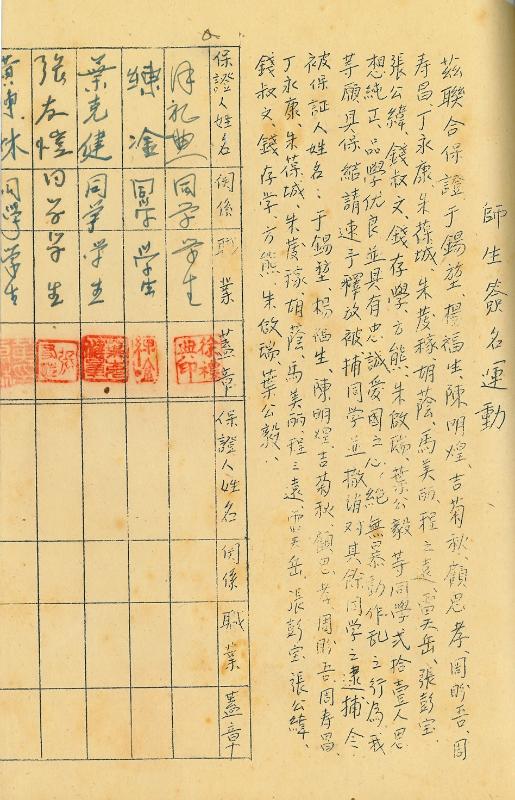 師生簽名運動
茲聯合保證于錫堃、楊福生、陳明煌、吉菊秋、顧思孝、周盼吾、周
寿昌、丁永康、朱葆城、朱蓘稼、胡蔭、馬美丽、程之遠、雷天岳、張彭宝、
張公緯、錢叔文、錢存学、方熊、朱啟瑞、葉公毅等同學弍拾壹人思
想純正品學优良並具有忠誠爱国之心絕無暴動作乱之行為、我
等願具保結請速予釋放被捕同学並撤消对其餘同学之逮捕令
被保証人姓名：于錫堃、楊福生、陳明煌、吉菊秋、顧思孝、周盼吾、周寿昌、
丁永康、朱葆城、朱蓘稼、胡蔭、馬美丽、程之遠、雷天岳、張彭宝、張公緯、
錢叔文、錢存学、方熊、朱啟瑞、葉公毅、
保證人姓名 関係 職業 蓋章 保證人姓名 関係 職業 蓋章
徐礼典 同学 学生 徐禮典印
練淦 同學 學生 練淦
葉克健 同学 学生
張友愷 同学 学生
同學 學生